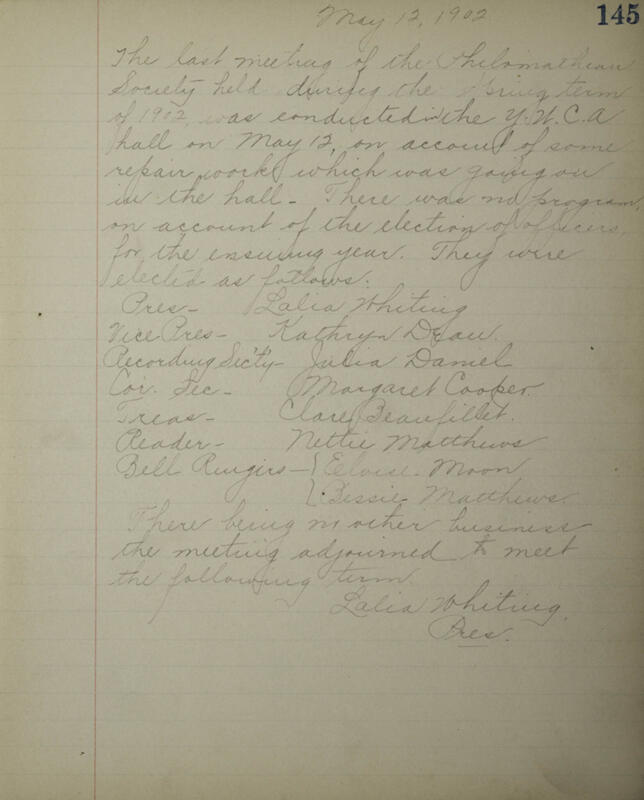 145
May 12, 1902
The last meeting of the Philomathean
Society held during the Spring term
of 1902, was conducted in the Y.W.C.A
hall on May 12, on account of some
repair work which was going on
in the hall - There was no program,
on account of the election of officers,
for the ensuing year. They were
elected as follows:
Pres - Lalia Whiting
Vice Pres - Kathryn Dean.
Recording Sec'ty - Julia Daniel
Cor. Sec - Margaret Cooper.
Treas - Clare Beaufillet.
Reader - Nettie Matthews
Bell Ringers - { Eeloise Moon
{ Bessie Matthews.
There being no other business
the meeting adjourned to meet
the following term.
Lalia Whiting,
Pres.